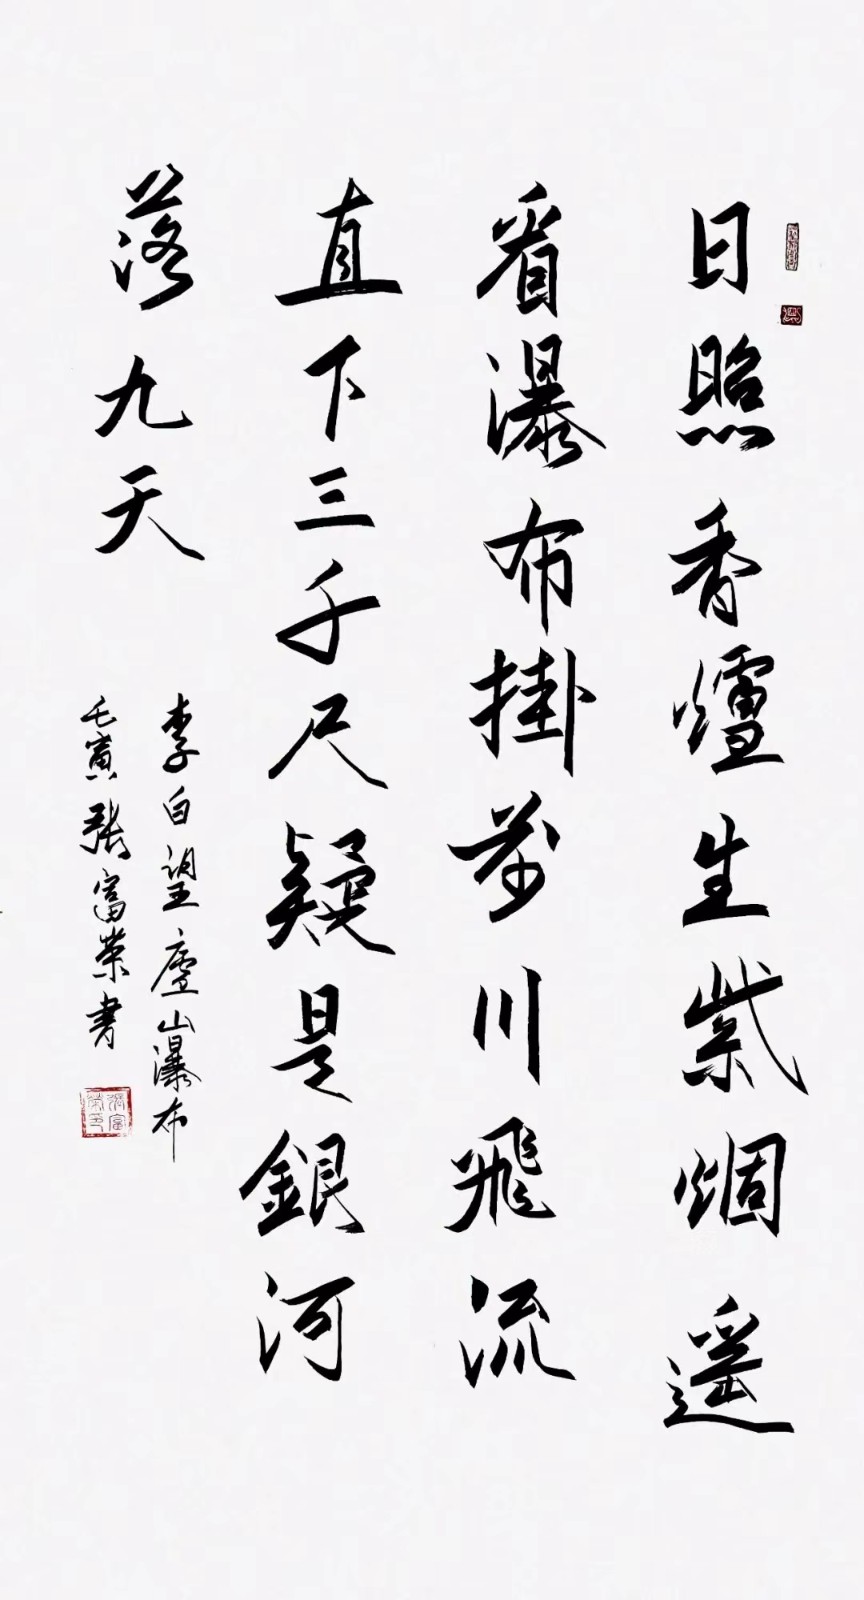 日照香爐生紫烟遥
看瀑布掛前川飛流
直下三千尺疑是銀河
落九天
李白望廬山瀑布
壬寅張富榮書
張富榮印